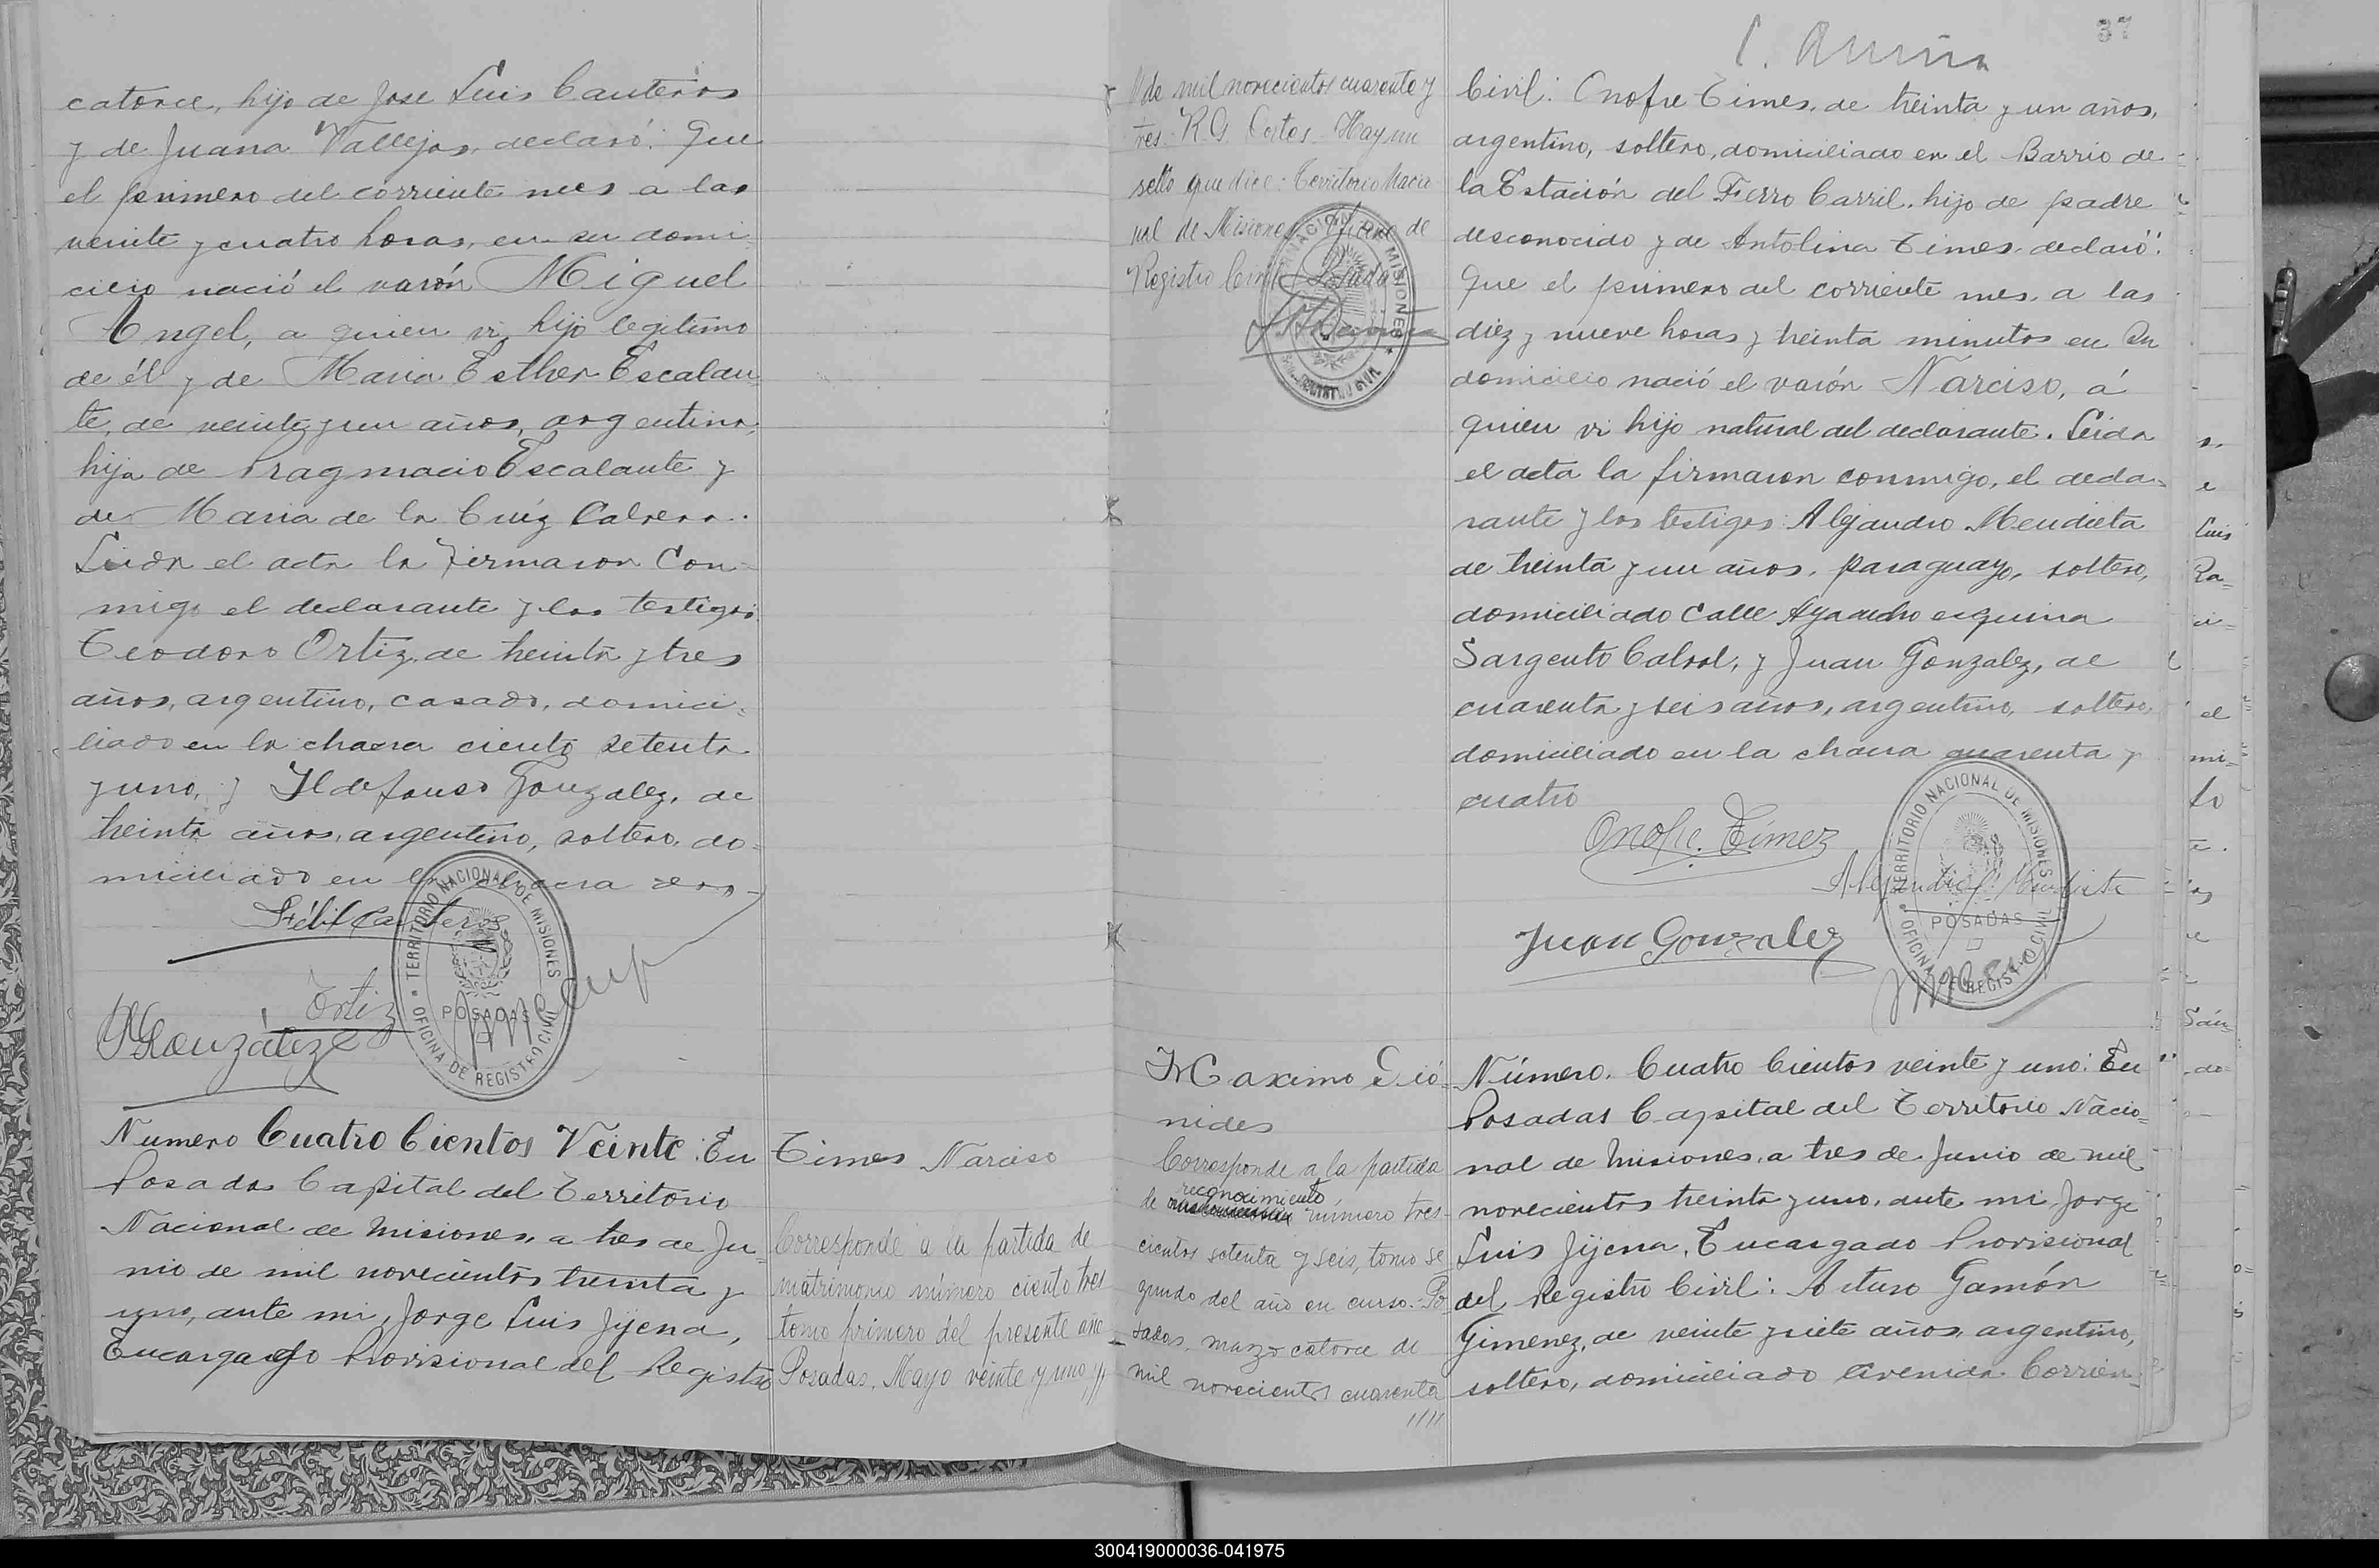 catorce, hijo de Jose Luis Canteros
y de Juana Vallejos, declaró: Que
el primero del corriente mes a las
veinte y cuatro horas, en su domi-
cilio nació el varón Miguel
Angel, a quien vi, hijo legitimo
de él y de Maria Esther Escalan-
te, de veinte y un años, argentina,
hija de Pragmacio Escalante y
de Maria de la Cruz Cabrera.
Leida el acta la firmaron Con-
migo el declarante y los testigos:
Teodoro Ortiz, de treinta y tres
años, argentino, casado, domici-
liado en la chacra ciento setenta
y uno, y Ildefonso Gonzalez, de
treinta años, argentino, soltero, do-
miciliado en la chacra dos-
Félix Canteros
Ortiz
González
TERRITORIO NACIONAL DE MISIONES
POSADAS
OFICINA DE REGISTRO CIVIL
Numero Cuatro Cientos Veinte: En
Posadas Capital del Territorio
Nacional de Misiones, a tres de Ju-
nio de mil novecientos treinta y
uno, ante mi, Jorge Luis Jijena,
Encargado Provisional del Registro
Times Narciso
Corresponde a la partida de
matrimonio número ciento tres
tomo primero del presente año
Posadas, Mayo veinte y uno //
37
// de mil novecientos cuarenta y
tres. R.G. Cortes. Hay un
sello que dice: Territorio Nacio
nal de Misiones Oficina de
Registro Civil Posadas
Civil: Onofre Times, de treinta y un años,
argentino, soltero, domiciliado en el Barrio de
la Estación del Fierro Carril, hijo de padre
desconocido y de Antolina Times, declaró:
Que el primero del corriente mes, a las
diez y nueve horas y treinta minutos en su
domicilio nació el varón Narciso, á
quien vi hijo natural del declarante. Leida
el acta la firmaron conmigo, el decla-
rante y los testigos: Alejandro Mendieta
de treinta y un años, paraguayo, soltero,
domiciliado Calle Ayacucho esquina
Sargento Cabral, y Juan Gonzalez, de
cuarenta y seis años, argentino, soltero,
domiciliado en la chacra cuarenta y
cuatro
Onofre Timez
Alejandro Mendieta
Juan Gonzalez
TERRITORIO NACIONAL DE MISIONES
POSADAS
OFICINA DE REGISTRO CIVIL
Maximo Leó-
nides
Corresponde a la partida
reconocimiento
de número tres-
cientos setenta y seis, tomo se
gundo del año en curso.- Po-
sadas, marzo catorce de
mil novecientos cuarenta
////
Número. Cuatro Cientos veinte y uno: En
Posadas Capital del Territorio Nacio-
nal de Misiones, a tres de Junio de mil
novecientos treinta y uno, ante mi Jorge
Luis Jijena, Encargado Provisional
del Registro Civil: Arturo Gamón
Gimenez, de veinte y siete años, argentino,
soltero, domiciliado Avenida Corrien-
300419000036-041975